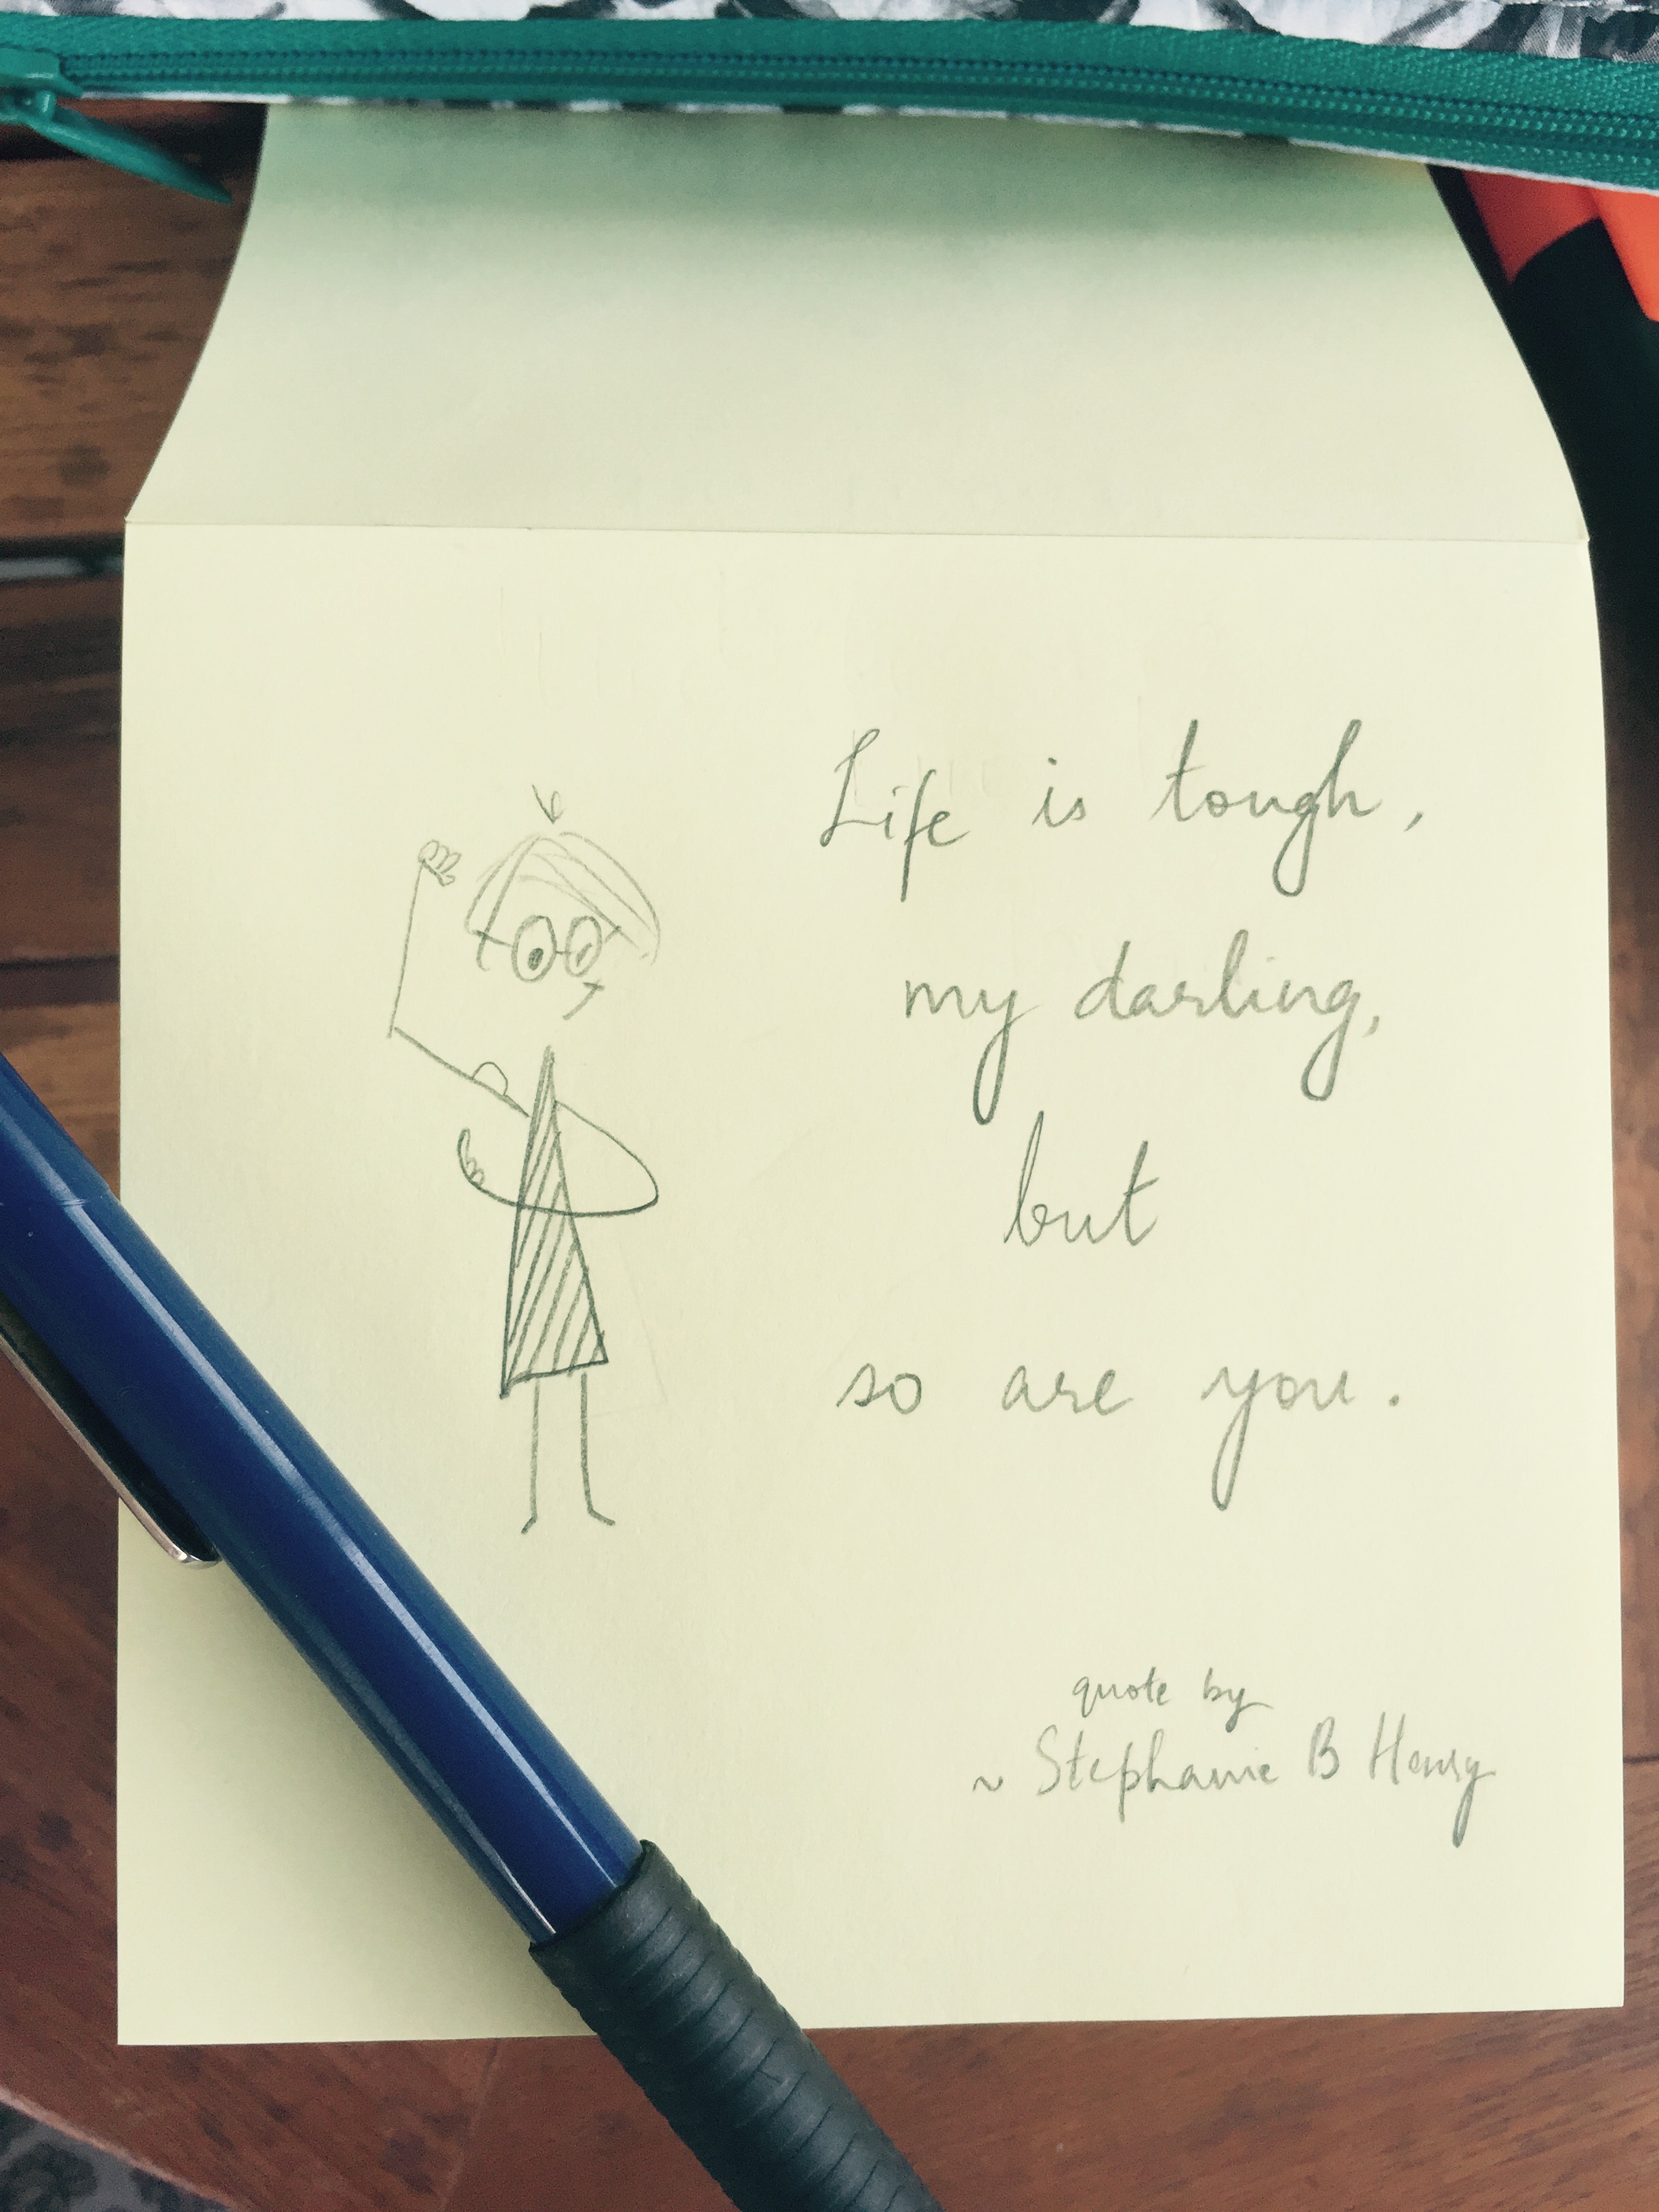 Life is tough,
my darling,
but
so are you.
quote by
~ Stephanie B Henry